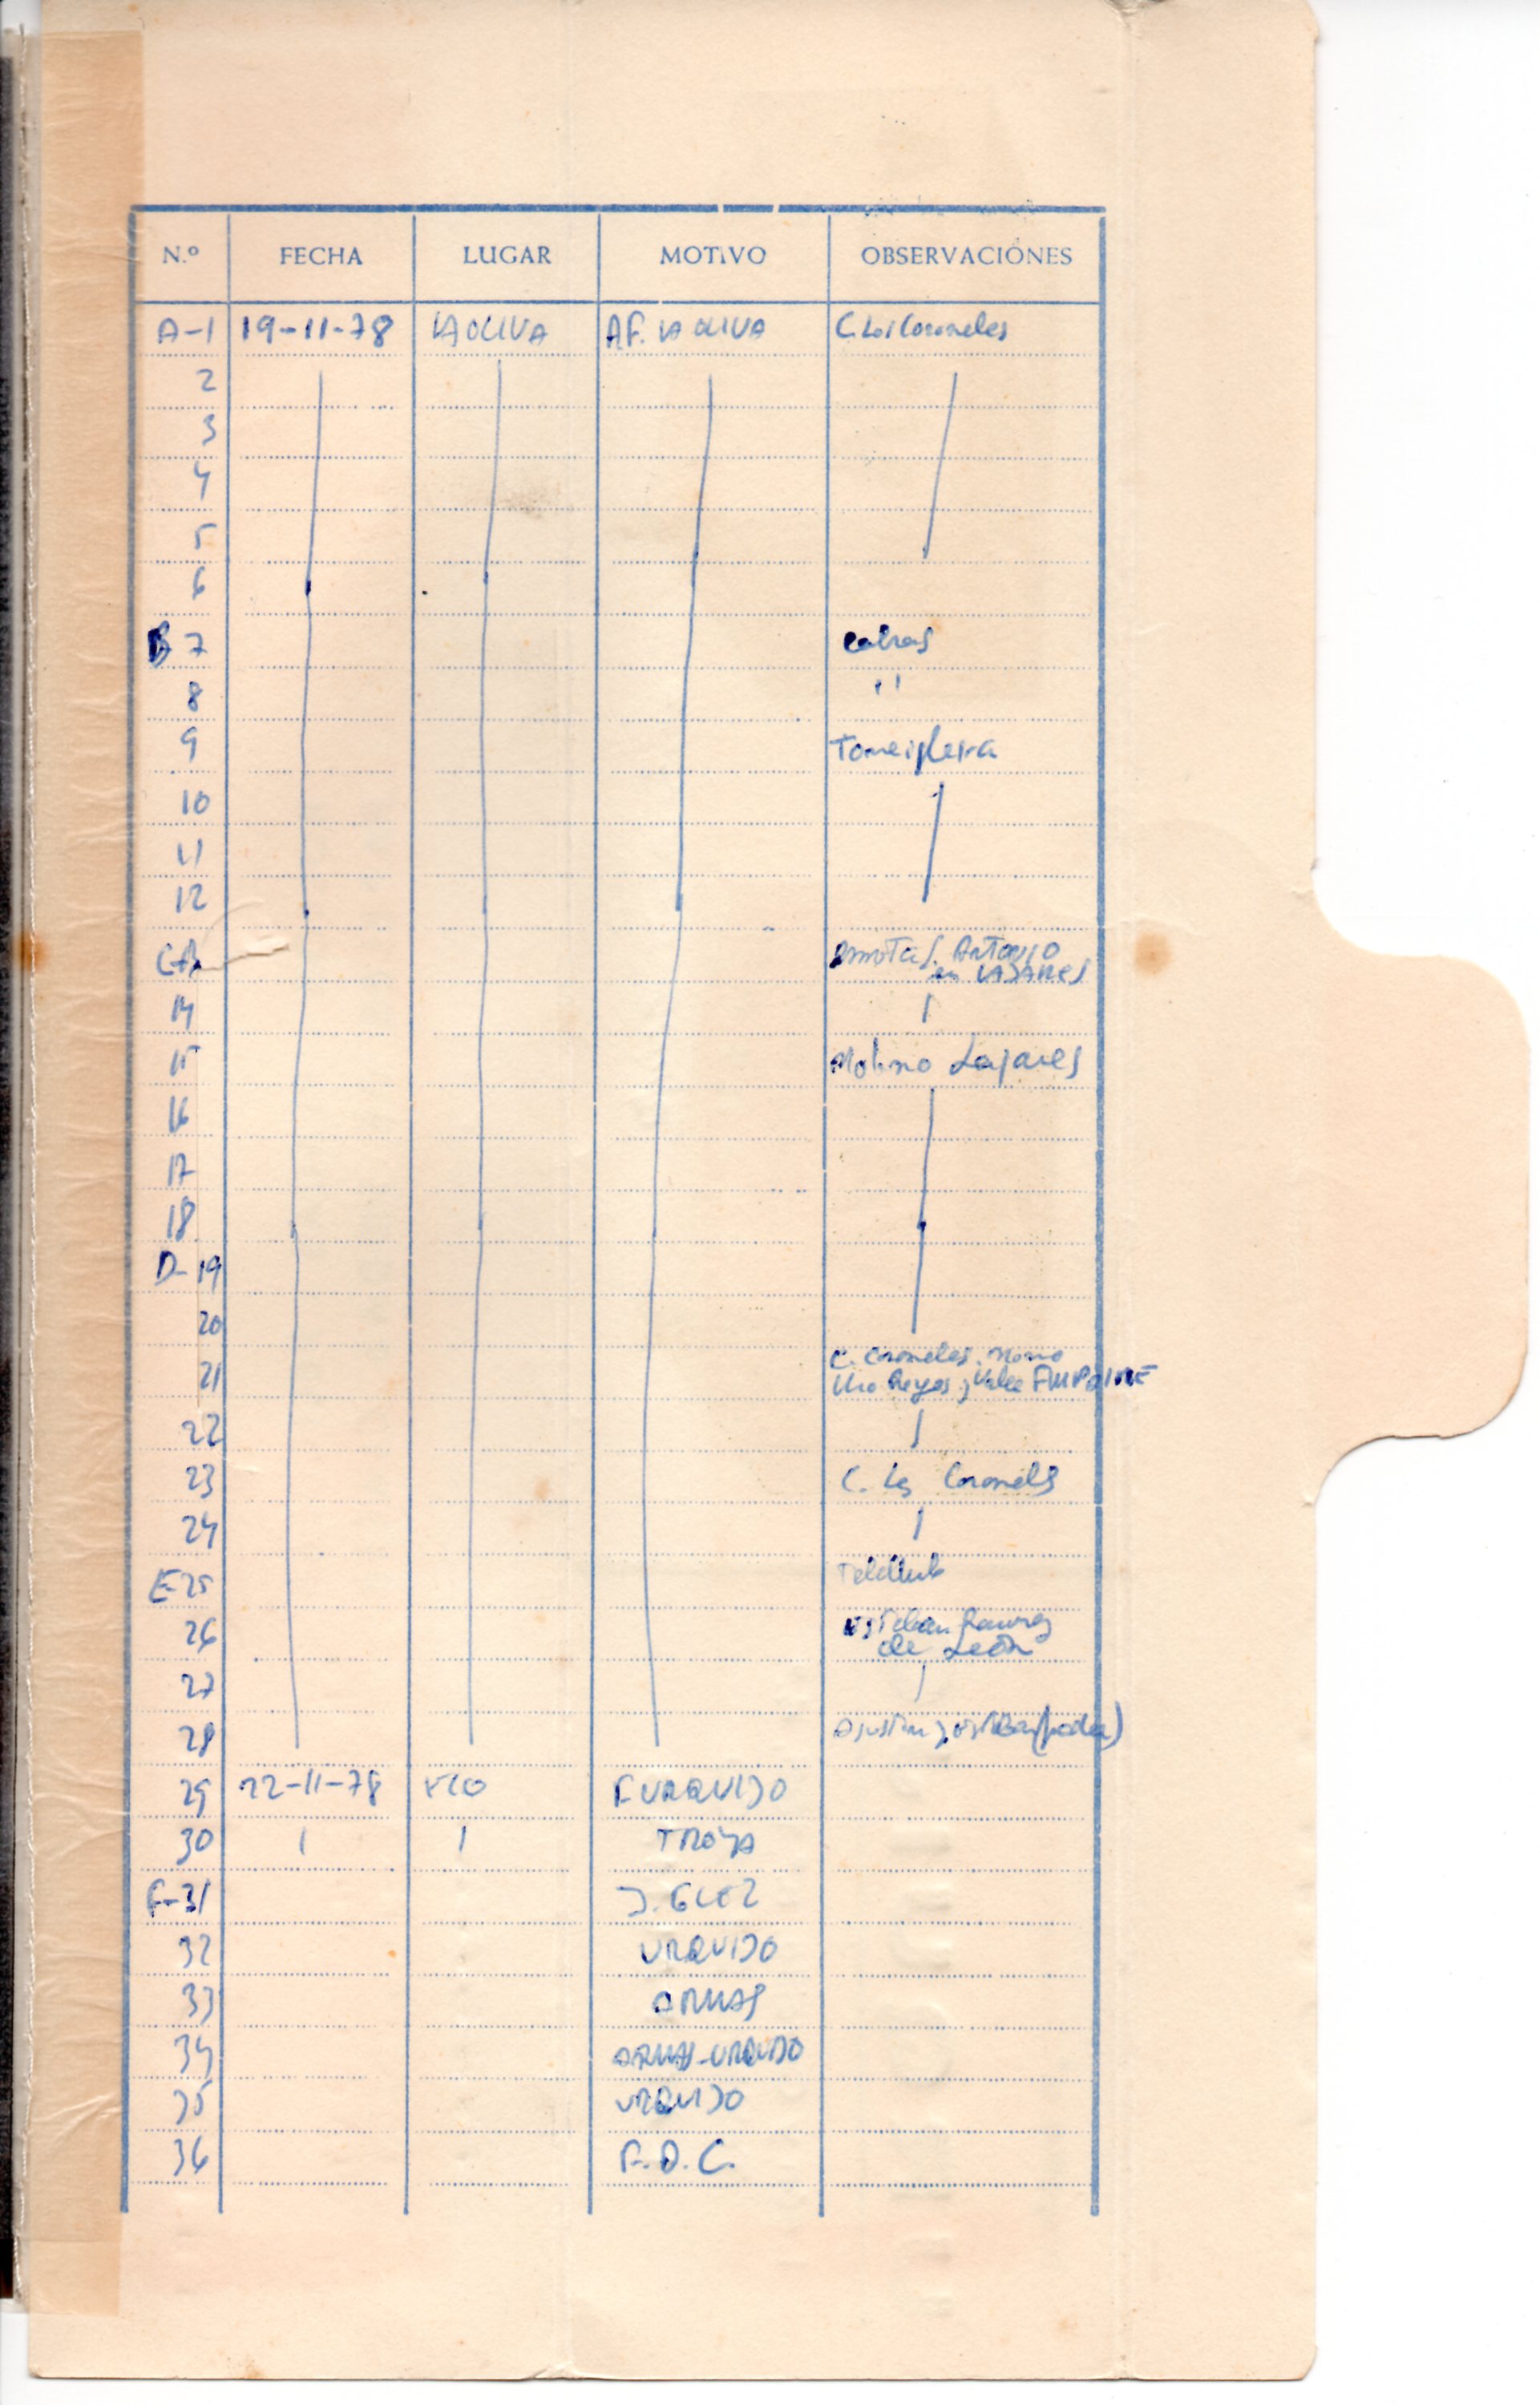 N.º FECHA LUGAR MOTIVO OBSERVACIONES
A-1 19-11-78 LA OLIVA A.F. LA OLIVA C. Los Coroneles
2
3
4
5
6
B 7 cabras
8 ''
9
10
11
12
C-13 Ermita S. Antonio
en LAJARES
14
15 Molino Lajares
16
17
18
D-19
20
21 C. Coroneles.
22
23 C. Los Coroneles
24
E-25 Teleclub
26 Esteban Ramirez
de León
27
28
29 22-11-78 FTO F URQUIJO
30 TROYA
F-31 J. GLEZ
32 URQUIJO
33 ARMAS
34 ARMAS-URQUIJO
35 URQUIJO
36 F.D.C.